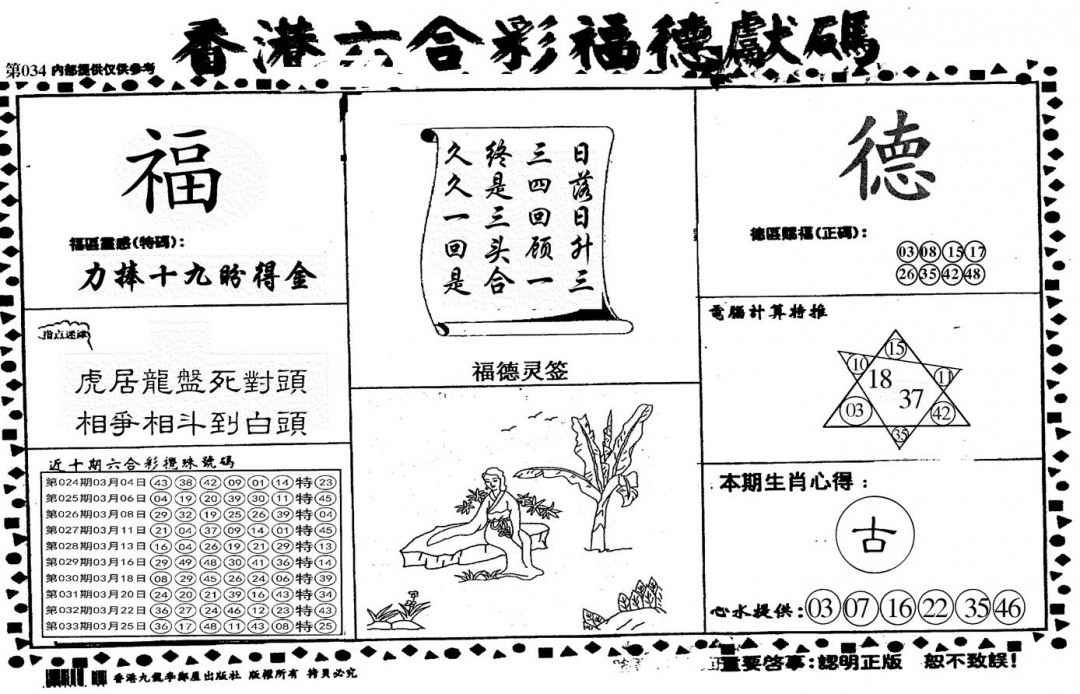 香港六合彩福德獻碼
第034 内部提供仅供参考
福
福區靈感(特碼):
力捧十九盼得金
指点迷津
虎居龍盤死對頭
相爭相斗到白頭
近十期六合彩攪珠號碼
第024期03月04日 43 38 42 09 01 14 特 23
第025期03月06日 04 19 20 39 30 11 特 45
第026期03月08日 29 32 19 25 26 39 特 04
第027期03月11日 21 04 37 09 14 01 特 45
第028期03月13日 16 04 26 19 21 29 特 13
第029期03月16日 29 49 48 30 41 36 特 14
第030期03月18日 08 29 45 26 24 06 特 39
第031期03月20日 24 20 21 39 16 43 特 34
第032期03月22日 36 27 24 46 12 23 特 43
第033期03月25日 36 17 48 11 43 08 特 25
日落日升三
三四回顾一
终是三头合
久久一回是
福德灵签
德
德區賜福(正碼):
03 08 15 17
26 35 42 48
電腦計算特推
15
10
11
18
37
03
42
35
本期生肖心得:
古
心水提供: 03 07 16 22 35 46
香港九龍李鄭屋出版社 版權所有 拷貝必究
重要啓事:認明正版 恕不致誤!